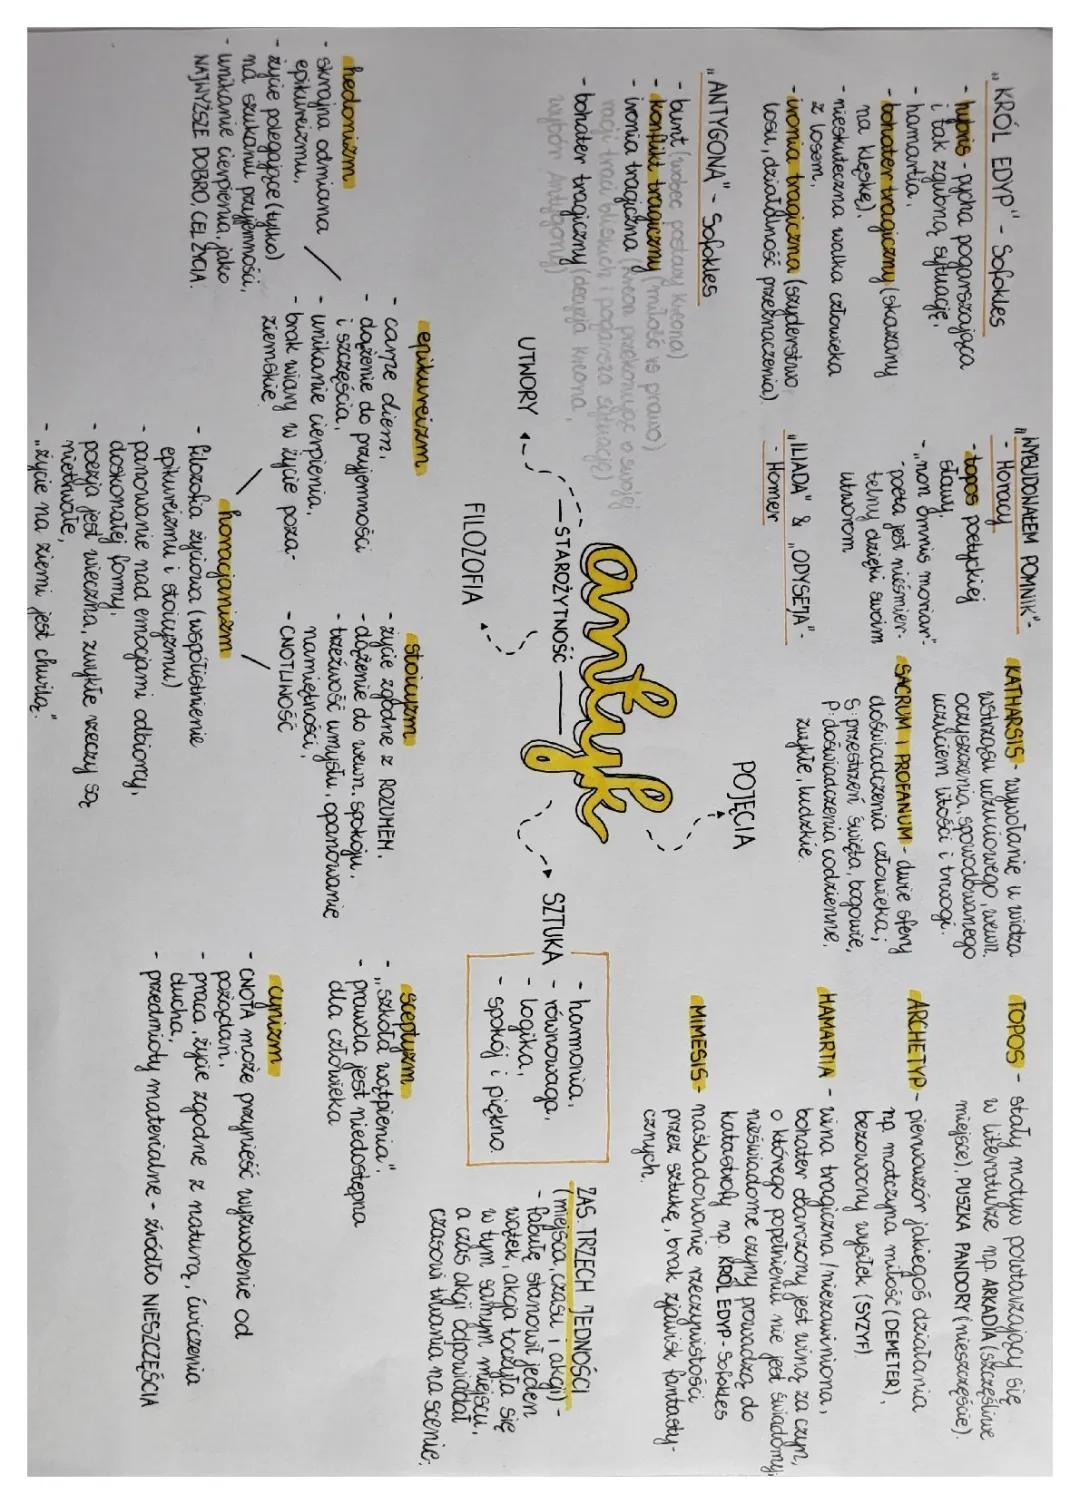 "KRÓL EDYP" - Sofokles
- hybris - pycha pogarszająca
i tak zgubną sytuację,
- hamartia,
- bohater tragiczny (skazany
na klęskę),
- nieskuteczna walka człowieka
z losem,
- ironia tragiczna (szyderstwo
losu, działalność przeznaczenia).
"ANTYGONA" - Sofokles
- bunt (wobec postawy Kreona)
- konflikt tragiczny (miłość vs prawo)
- ironia tragiczna (Kreon przekonując o swojej
racji traci bliskich i pogarsza sytuację)
- bohater tragiczny (decyzja Kreona,
wybór Antygony)
"WYBUDOWAŁEM POMNIK" -
- Horacy
- topos poetyckiej
sławy,
- "non omnis moriar"
- poeta jest nieśmier-
telny dzięki swoim
utworom
"ILIADA" & "ODYSEJA" -
- Homer
KATHARSIS - wywołanie u widza
wstrząsu uczuciowego, wewn.
oczyszczenia, spowodowanego
uczuciem litości i trwogi.
SACRUM I PROFANUM - dwie sfery
doświadczenia człowieka;
S: przestrzeń święta, bogowie,
P: doświadczenia codzienne,
zwykłe, ludzkie.
TOPOS - stały motyw powtarzający się
w literaturze np. ARKADIA (szczęśliwe
miejsce), PUSZKA PANDORY (nieszczęście).
ARCHETYP - pierwowzór jakiegoś działania
np. matczyna miłość (DEMETER),
bezowocny wysiłek (SYZYF)
HAMARTIA - wina tragiczna / niezawiniona,
bohater obarczony jest winą za czyn,
o którego popełnieniu nie jest świadomy,
nieświadome czyny prowadzą do
katastrofy np. KRÓL EDYP - Sofokles
MIMESIS - naśladowanie rzeczywistości
przez sztukę, brak zjawisk fantasty-
cznych.
POJĘCIA
antyk
STAROŻYTNOŚĆ
UTWORY
FILOZOFIA
SZTUKA
- harmonia,
- równowaga,
- logika,
- spokój i piękno
ZAS. TRZECH JEDNOŚCI
(miejsca, czasu i akcji) -
- fabułę stanowił jeden
wątek, akcja toczyła się
w tym samym miejscu,
a czas akcji odpowiadał
czasowi trwania na scenie.
hedonizm
- skrajna odmiana
epikureizmu,
- życie polegające (tylko)
na szukaniu przyjemności,
- unikanie cierpienia, jako
NAJWYŻSZE DOBRO, CEL ŻYCIA.
epikureizm
- carpe diem,
- dążenie do przyjemności
i szczęścia,
- unikanie cierpienia,
- brak wiary w życie poza-
ziemskie
stoicyzm
- życie zgodne z ROZUMEM,
- dążenie do wewn. spokoju,
- trzeźwość umysłu, opanowanie
namiętności,
- CNOTLIWOŚĆ
horacjanizm
- filozofia życiowa (współistnienie
epikureizmu i stoicyzmu)
- panowanie nad emocjami odbiorcy,
doskonałej formy,
- poezja jest wieczna, zwykłe rzeczy są
nietrwałe,
- "życie na ziemi jest chwilą."
sceptyzm
- "szkoła wątpienia",
- prawda jest niedostępna
dla człowieka
cynizm
- CNOTA może przynieść wyzwolenie od
pożądań,
- praca, życie zgodne z naturą, ćwiczenia
ducha,
- przedmioty materialne - źródło NIESZCZĘŚCIA